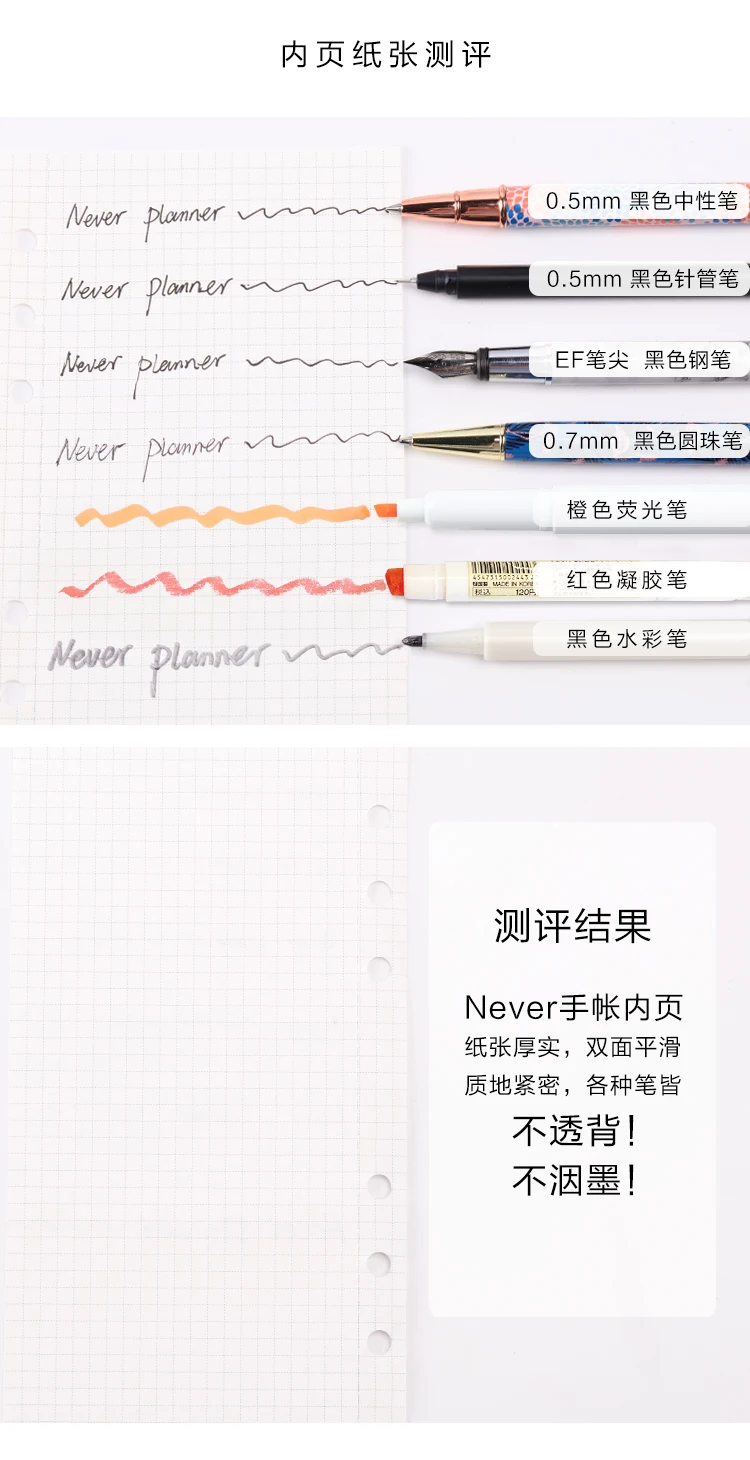 内页纸张测评
Never planner
0.5mm 黑色中性笔
Never planner
0.5mm 黑色针管笔
Never planner
EF笔尖 黑色钢笔
Never planner
0.7mm 黑色圆珠笔
橙色荧光笔
4547315002443
MADE IN KORE
税込 120円
红色凝胶笔
Never planner
黑色水彩笔
测评结果
Never手帐内页
纸张厚实，双面平滑
质地紧密，各种笔皆
不透背！
不洇墨！